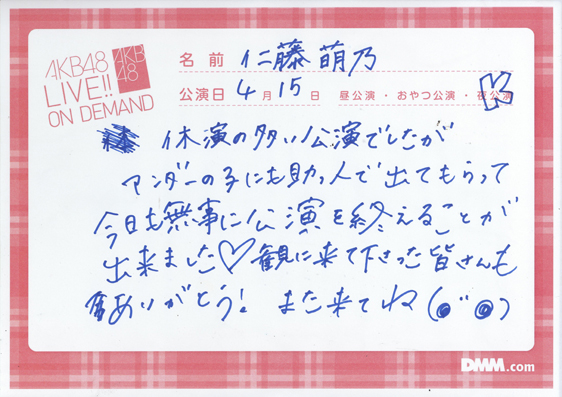 AKB48
LIVE!!
ON DEMAND
AKB
48
名前 仁藤萌乃
公演日 4月15日 昼公演・おやつ公演・夜公演
K
休演の多い公演でしたが
アンダーの子にも助っ人で出てもらって
今日も無事に公演を終えることが
出来ました♡観に来て下さった皆さんも
ありがとう! また来てね(◉¨◉)
DMM.com